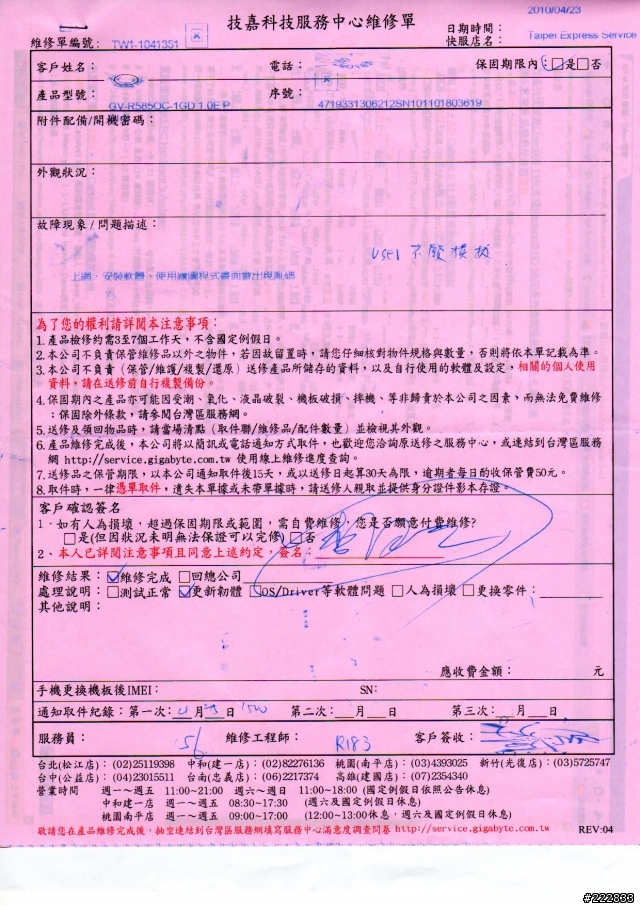 技嘉科技服務中心維修單
2010/04/23
維修單編號: TW1-1041351
日期時間:
快服店名: Taipei Express Service
客戶姓名: 電話: 保固期限內:□是□否
產品型號: GV-R585OC-1GD 1.0E P 序號: 4719331306212SN101101803619
附件配備/開機密碼:
外觀狀況:
故障現象/問題描述:
user 不願換板
上網、安裝軟體、使用繪圖程式畫面會出現亂碼
為了您的權利請詳閱本注意事項:
1.產品檢修約需3至7個工作天,不含國定例假日。
2.本公司不負責保管維修品以外之物件,若因故留置時,請您仔細核對物件規格與數量,否則將依本單記載為準。
3.本公司不負責(保管/維護/複製/還原)送修產品所儲存的資料,以及自行使用的軟體及設定,相關的個人使用
資料,請在送修前自行複製備份。
4.保固期內之產品亦可能因受潮、氧化、液晶破裂、機板破損、摔機、等非歸責於本公司之因素,而無法免費維修
;保固除外條款,請參閱台灣區服務網。
5.送修及領回物品時,請當場清點(取件聯/維修品/配件數量)並檢視其外觀。
6.產品維修完成後,本公司將以簡訊或電話通知方式取件,也歡迎您洽詢原送修之服務中心,或連結到台灣區服務
網 http://service.gigabyte.com.tw 使用線上維修進度查詢。
7.送修品之保管期限,以本公司通知取件後15天,或以送修日起算30天為限,逾期者每日酌收保管費50元。
8.取件時,一律憑單取件,遺失本單據或未帶單據時,請送修人親取並提供身分證件影本存證。
客戶確認簽名
1、如有人為損壞,超過保固期限或範圍,需自費維修,您是否願意付費維修?
□是(但因狀況未明無法保證可以完修) □否
2、本人已詳閱注意事項且同意上述約定,簽名:
維修結果:☑維修完成 □回總公司
處理說明:□測試正常 ☑更新韌體 □OS/Driver等軟體問題 □人為損壞 □更換零件:
其他說明:
應收費金額: 元
手機更換機板後IMEI: SN:
通知取件紀錄:第一次: 4月 日 1500 第二次: 月 日 第三次: 月 日
服務員: 56 維修工程師: R183 客戶簽收:
台北(松江店):(02)25119398 中和(建一店):(02)82276136 桃園(南平店):(03)4393025 新竹(光復店):(03)5725747
台中(公益店):(04)23015511 台南(忠義店):(06)2217374 高雄(建國店):(07)2354340
營業時間 週一～週五 11:00~21:00 週六～週日 11:00~18:00 (國定例假日依照公告休息)
中和建一店 週一～週五 08:30~17:30 (週六及國定例假日休息)
桃園南平店 週一～週五 09:00~17:00 (12:00~13:00休息,週六及國定例假日休息)
敬請您在產品維修完成後,抽空連結到台灣區服務網填寫服務中心滿意度調查問卷 http://service.gigabyte.com.tw REV:04
#222833